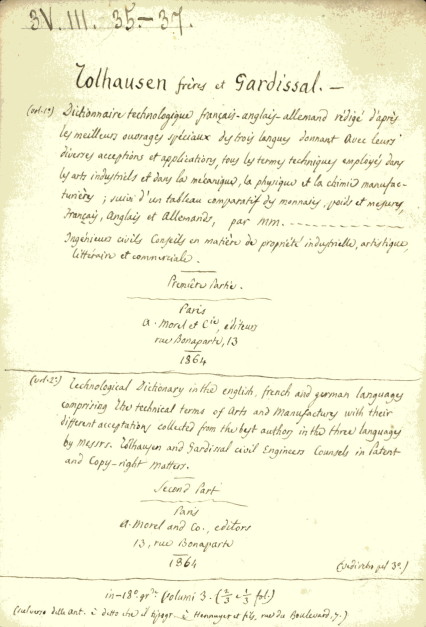 3V. III. 35-37.
Tolhausen frères et Gardissal. —
(vol-1º) Dictionnaire technologique français-anglais-allemand rédigé d'après
les meilleurs ouvrages spéciaux des trois langues donnant avec leurs
diverses acceptions et applications, tous les termes techniques employés dans
les arts industriels et dans la mécanique, la physique et la chimie manufac-
turière; suivi d'un tableau comparatif des monnaies, poids et mesures,
Français, Anglais et Allemands, par MM. - - - - - - - - - - -
Ingénieurs civils Conseils en matière de propriété industrielle, artistique,
littéraire et commerciale.
Première Partie.
Paris
A. Morel et Cie, editeurs
rue Bonaparte, 13
1864
(vol-2º) Technological Dictionary in the english, french and german languages
comprising the technical terms of Arts and Manufactures with their
different acceptations collected from the best authors in the three languages
by Messrs. Tolhausen and Gardissal civil Engineers Counsels in Patent
and Copy-right matters.
Second Part
Paris
A. Morel and Co., editors
13, rue Bonaparte
1864
(vedi retro pel 3º.)
in-18º. gr.di Volumi 3. (2/3 e 1/3 fol.)
(sul verso delle Ant. è detto che il è Hennuyer et fils, rue du Boulevard, 7.)